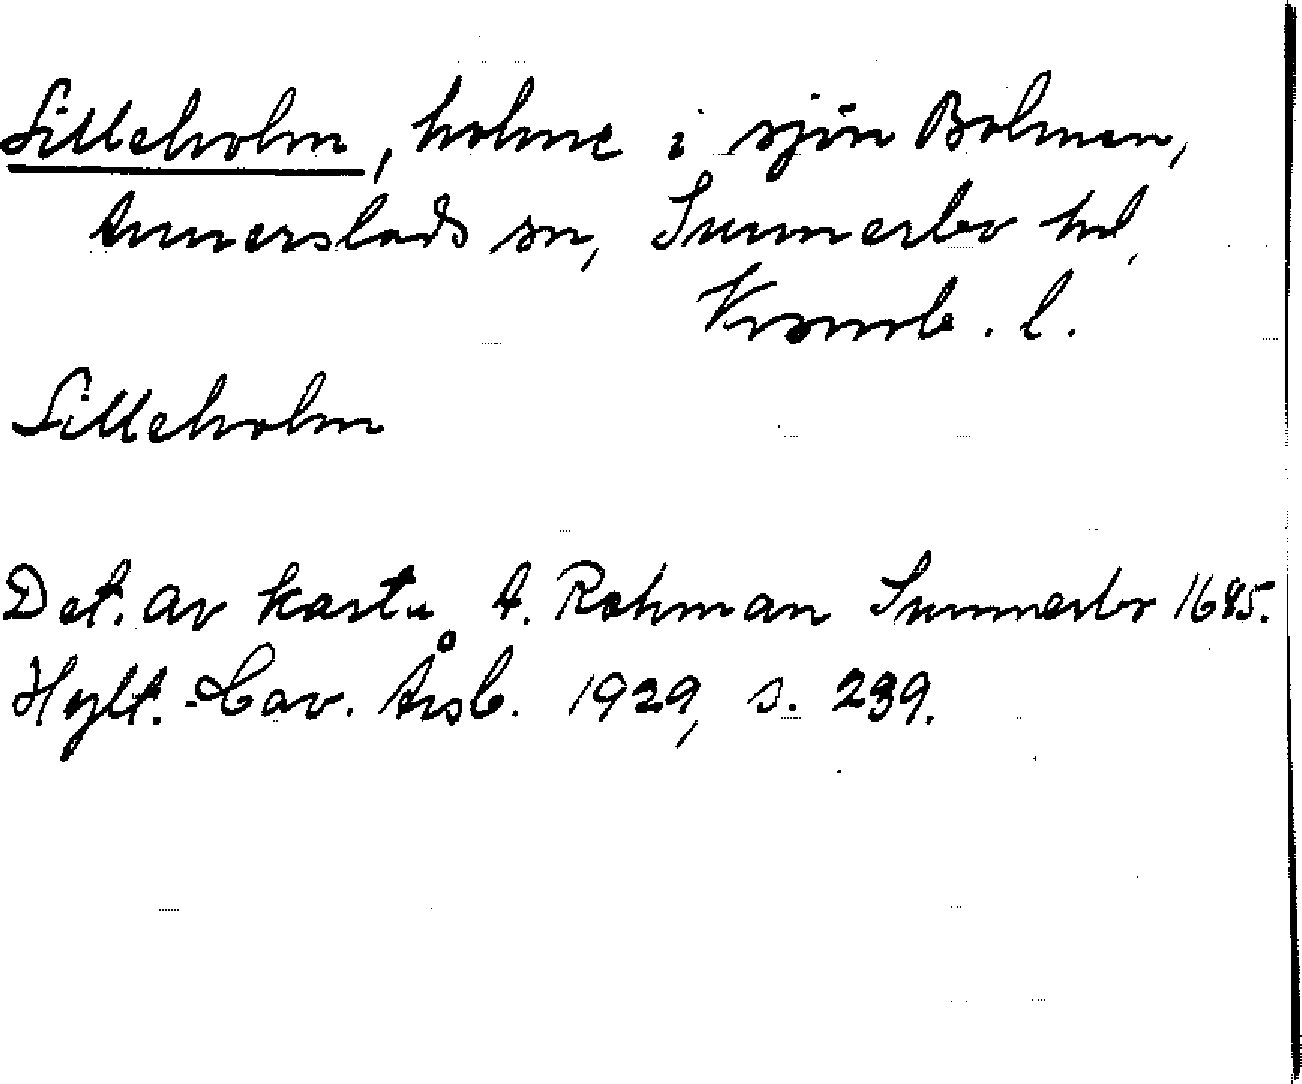 Silleholm, holme i sjön Bolmen,
Annerstads sn, Sunnerbo hd,
Kronob. l.
Silleholm
Det. av karta A. Rahman Sunnerbo 1685.
Hylt.-Cav. Årsb. 1929, s. 239.